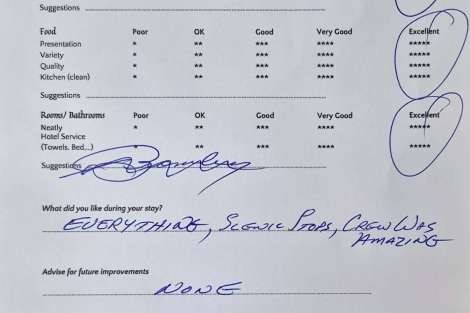 Suggestions
Food Poor OK Good Very Good Excellent
Presentation * ** *** **** *****
Variety * ** *** **** *****
Quality * ** *** **** *****
Kitchen (clean) * ** *** **** *****
Suggestions
Rooms/ Bathrooms Poor OK Good Very Good Excellent
Neatly * ** *** **** *****
Hotel Service
(Towels, Bed,..) * ** *** **** *****
Suggestions
What did you like during your stay?
EVERYTHING, SCENIC STOPS, CREW WAS
AMAZING
Advise for future improvements
NONE